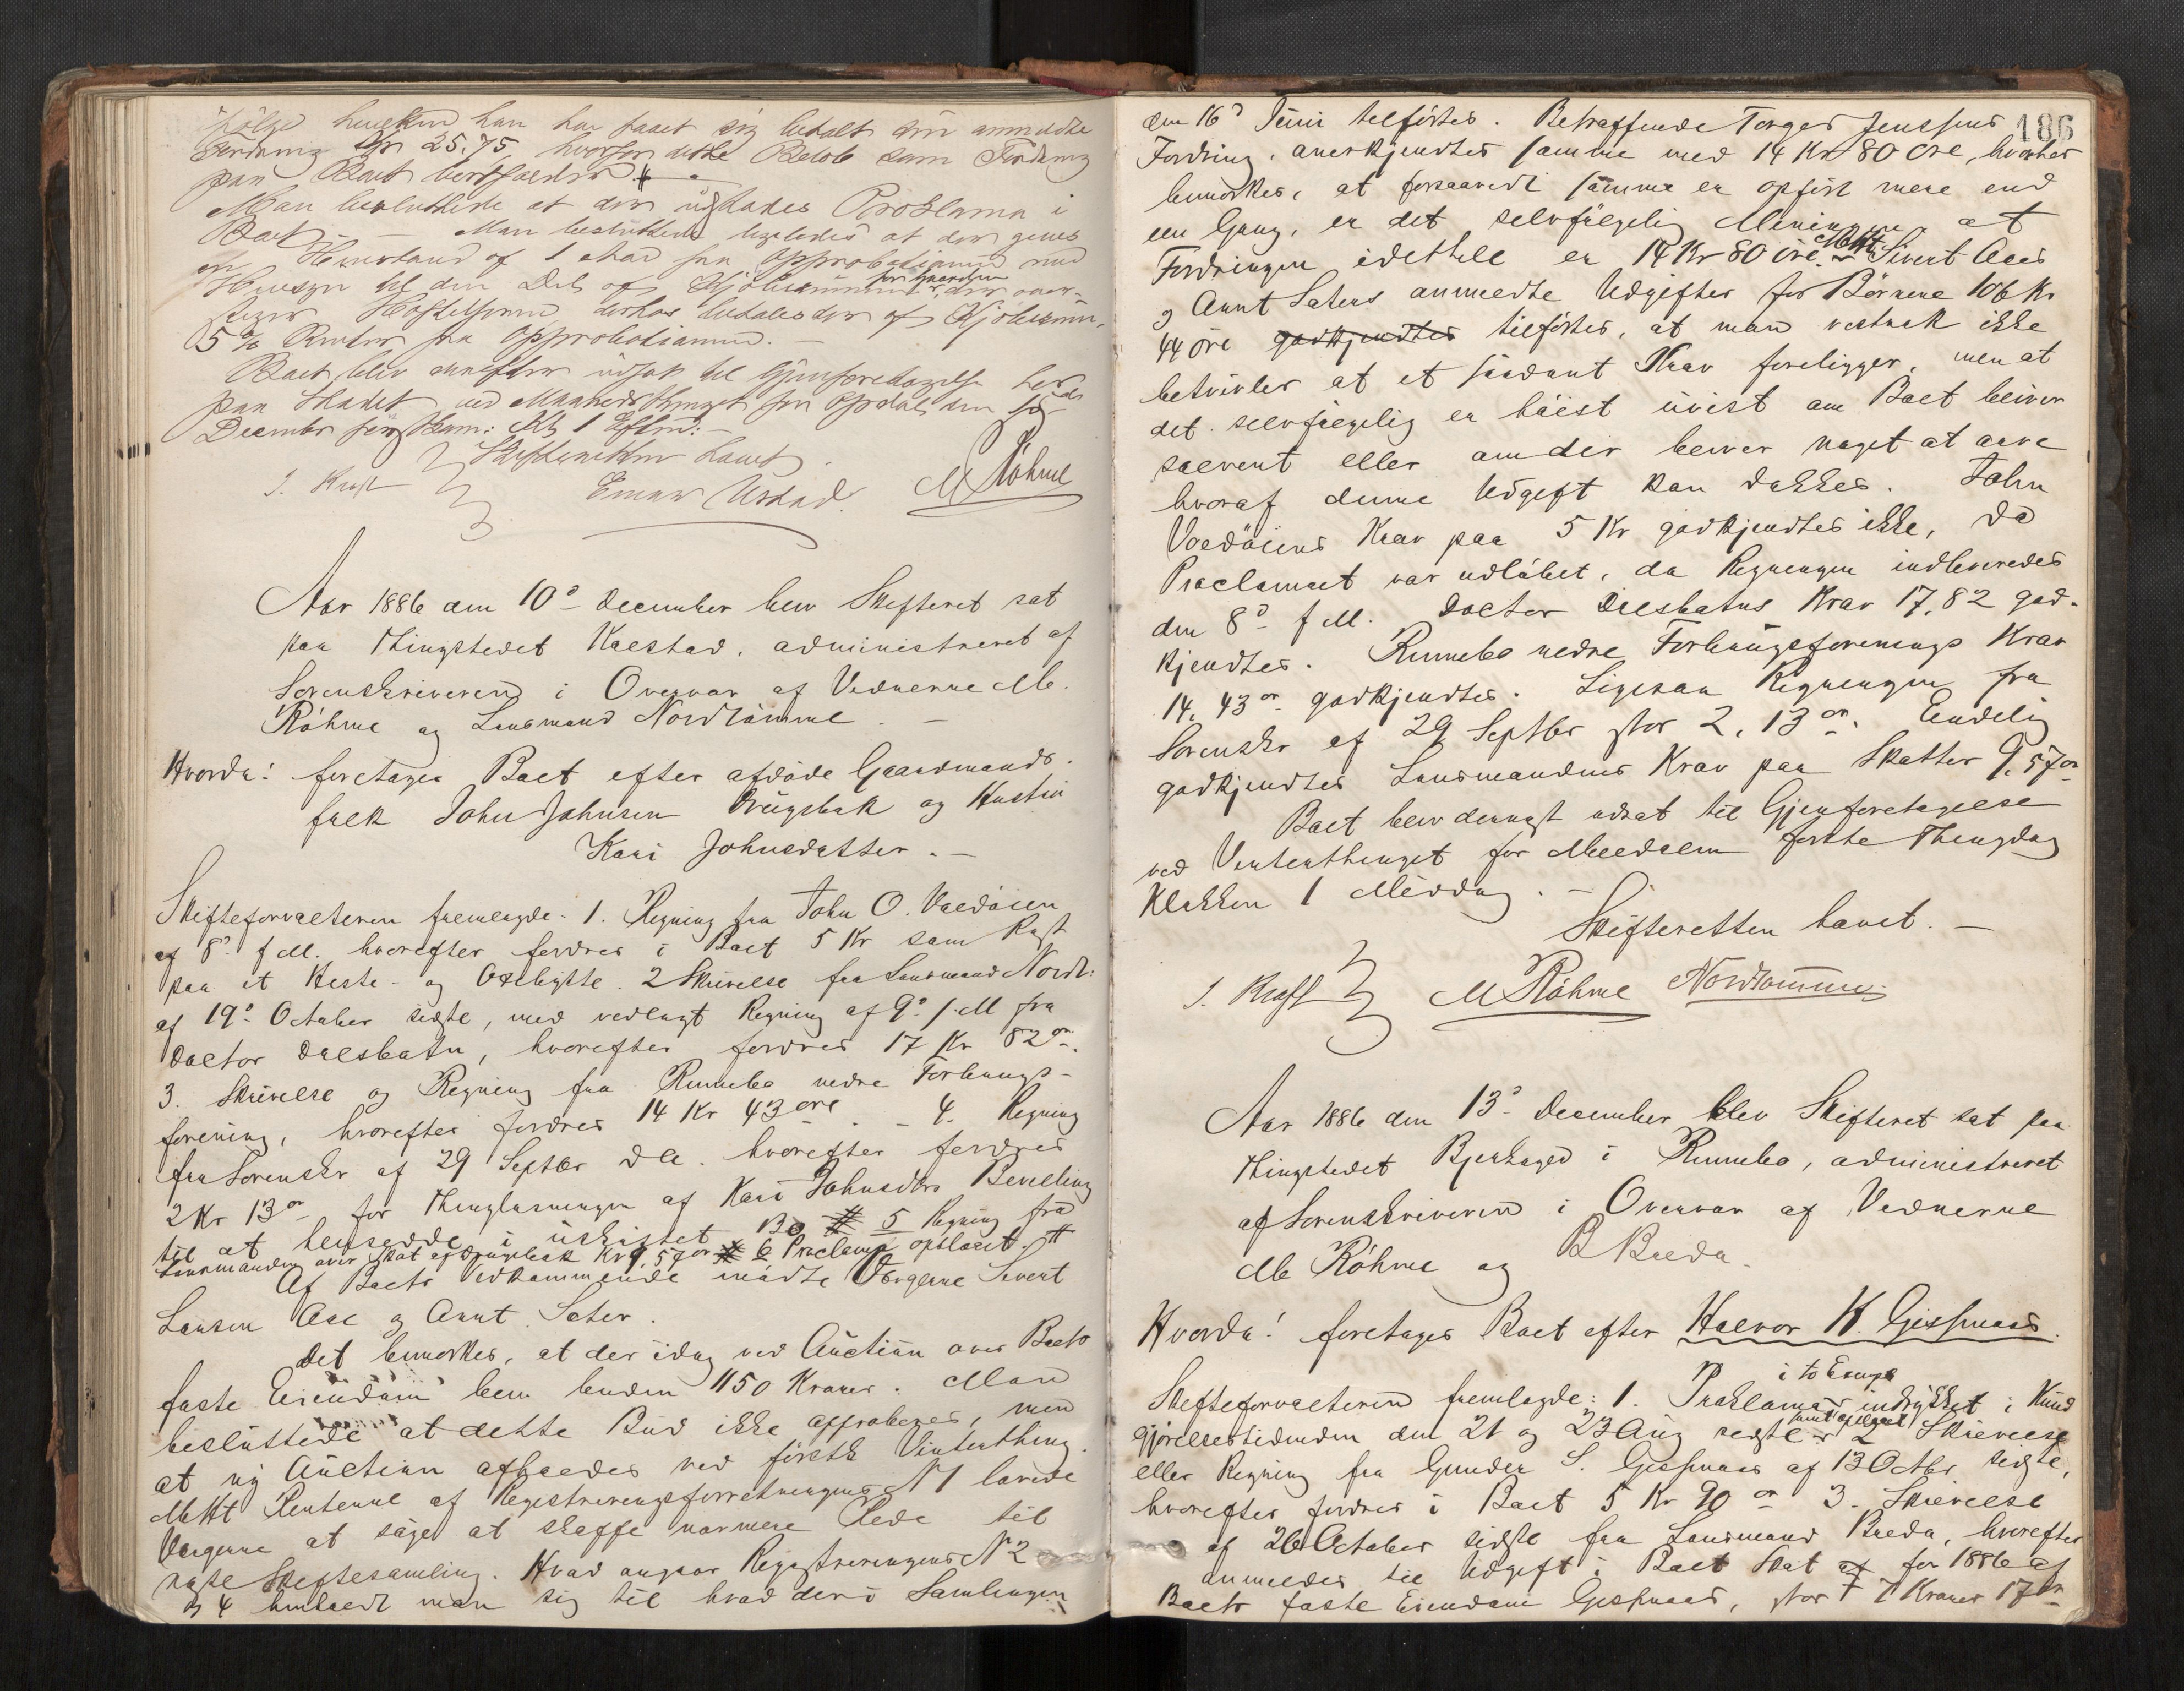 følge hvilken han har faaet sig betalt sin anmeldte
Fordring Kr 25.75, hvorfor dette Beløb som Fordring
paa Boet bortfalder.
Man besluttede at der udstædes Proklama i
Boet. — Man besluttede ligeledes at der gives
en Henstand af 1 Maaned fra Approbationen med
Hensyn til den Del af Kjøbesummen for Gaarden, der over-
stiger Heftelserne, derhos betales der af Kjøbesum.
5 % Renter fra Approbationen. —
Boet blev derefter udsat til Gjenforetagelse her
paa Stedet ved Maanedsthinget for Opdal den
December førstk. Kl 1 Efterm: —
Skifteretten hævet.
I. Kraft Einar Ustad. M Røhme
Aar 1886 den 10de December blev Skifteret sat
paa Thingstedet Kaestad, administreret af
Sorenskriveren i Overvær af Vidnerne M.
Røhme og Lensmand Nordtømme. —
Hvorda: foretages Boet efter afdøde Gaardmands-
folk John Johnsen Drugsbak og Hustru
Kari Johnsdatter. —
Skifteforvalteren fremlagde: 1. Regning fra John O. Voldøien
af 8de f M. hvorefter fordres i Boet 5 Kr som Rest
paa et Heste- og Oxebytte. 2 Skrivelse fra Lensmand Nordt:
af 19de October sidste, med vedlagt Regning af 9de f. M fra
Doctor Dalsbotn, hvorefter fordres 17 Kr 82 ør.
3. Skrivelse og Regning fra Rennebo nedre Forbrugs-
forening, hvorefter fordres 14 Kr 43 øre. — 4. Regning
fra Sorenskr af 29 Septbr d A. hvorefter fordres
2 Kr 13 ør for Thinglæsningen af Kari Johnsdtrs Bevilling
til at hensidde i uskiftet Bo # 5 Regning fra
Lensmanden over Skat af Drugsbak Kr 9,57 ør # 6 Proclama opslaaet #
Af Boets Vedkommende mødte Værgerne Sivert
Larsen Aae og Arnt Sæter.
Det bemærkes, at der idag ved Auction over Boets
faste Eiendom blev buden 1150 Kroner. Man
besluttede at dette Bud ikke approberes, men
at ny Auction afholdes ved første Vinterthing.
M Ht Renterne af Registreringsforretningens N 1 lovede
Vergerne at søge at skaffe nærmere Rede til
næste Skiftesamling. Hvad angaar Registreringens N 2
og 4 henholdt man sig til hvad der i Samlingen
186
den 16de Juni tilførtes. Betræffende Torger Jenssens
Fordring, anerkjendtes samme med 14 Kr 80 øre, hvorhos
bemærkes, at forsaavidt samme er opført mere end
een Gang, er det selvfølgelig Meningen, at
Fordringen idethele er 14 Kr 80 øre. M Ht Sivert Aaes
og Arnt Sæters anmeldte Udgifter for Børnene 106 Kr
44 øre godkjendtes tilførtes, at man vestnok ikke
betvivler at et saadant Krav foreligger, men at
det selvfølgelig er høist uvist om Boet bliver
solvent eller om der bliver noget at arve
hvoraf denne Udgift kan dækkes. John
Voldøiens Krav paa 5 Kr godkjendtes ikke, da
Proclamaet var udløbet, da Regningen indleveredes
den 8de f M. Doctor Dalsbotns Krav 17,82 god-
kjendtes. Rennebo nedre Forbrugsforenings Krav
14,43 ør godkjendtes. Ligesaa Regningen fra
Sorenskr af 29 Septbr stor 2,13 ør. Endelig
godkjendtes Lensmandens Krav paa Skatter 9,57 ør
Boet blev dernæst udsat til Gjenforetagelse
ved Vinterthinget for Meldalen første Thingdag
Klokken 1 Middag. —
Skifteretten hævet. —
I. Kraft M Røhme Nordtømme
Aar 1886 den 13de December blev Skifteret sat paa
Thingstedet Bjerkager i Rennebo, administreret
af Sorenskriveren i Overvær af Vidnerne
M Røhme og B Breda.
Hvorda: foretages Boet efter Halvor K. Gisnaas.
Skifteforvalteren fremlagde: 1. Proklama i to Exempl indrykket i Kund
gjørelsestidenden den 21 og 23 Aug sidste samt opslaaet 2 Skrivelse
eller Regning fra Gunder S. Gisnaas af 13 Octbr sidste,
hvorefter fordres i Boet 5 Kr 90 ør 3. Skrivelse
af 26 October sidste fra Lensmand Breda, hvorefter
anmeldes til Udgift i Boet Skat af for 1886 af
Boets faste Eiendom Gisnaas, stor 7 Kroner 17 ør